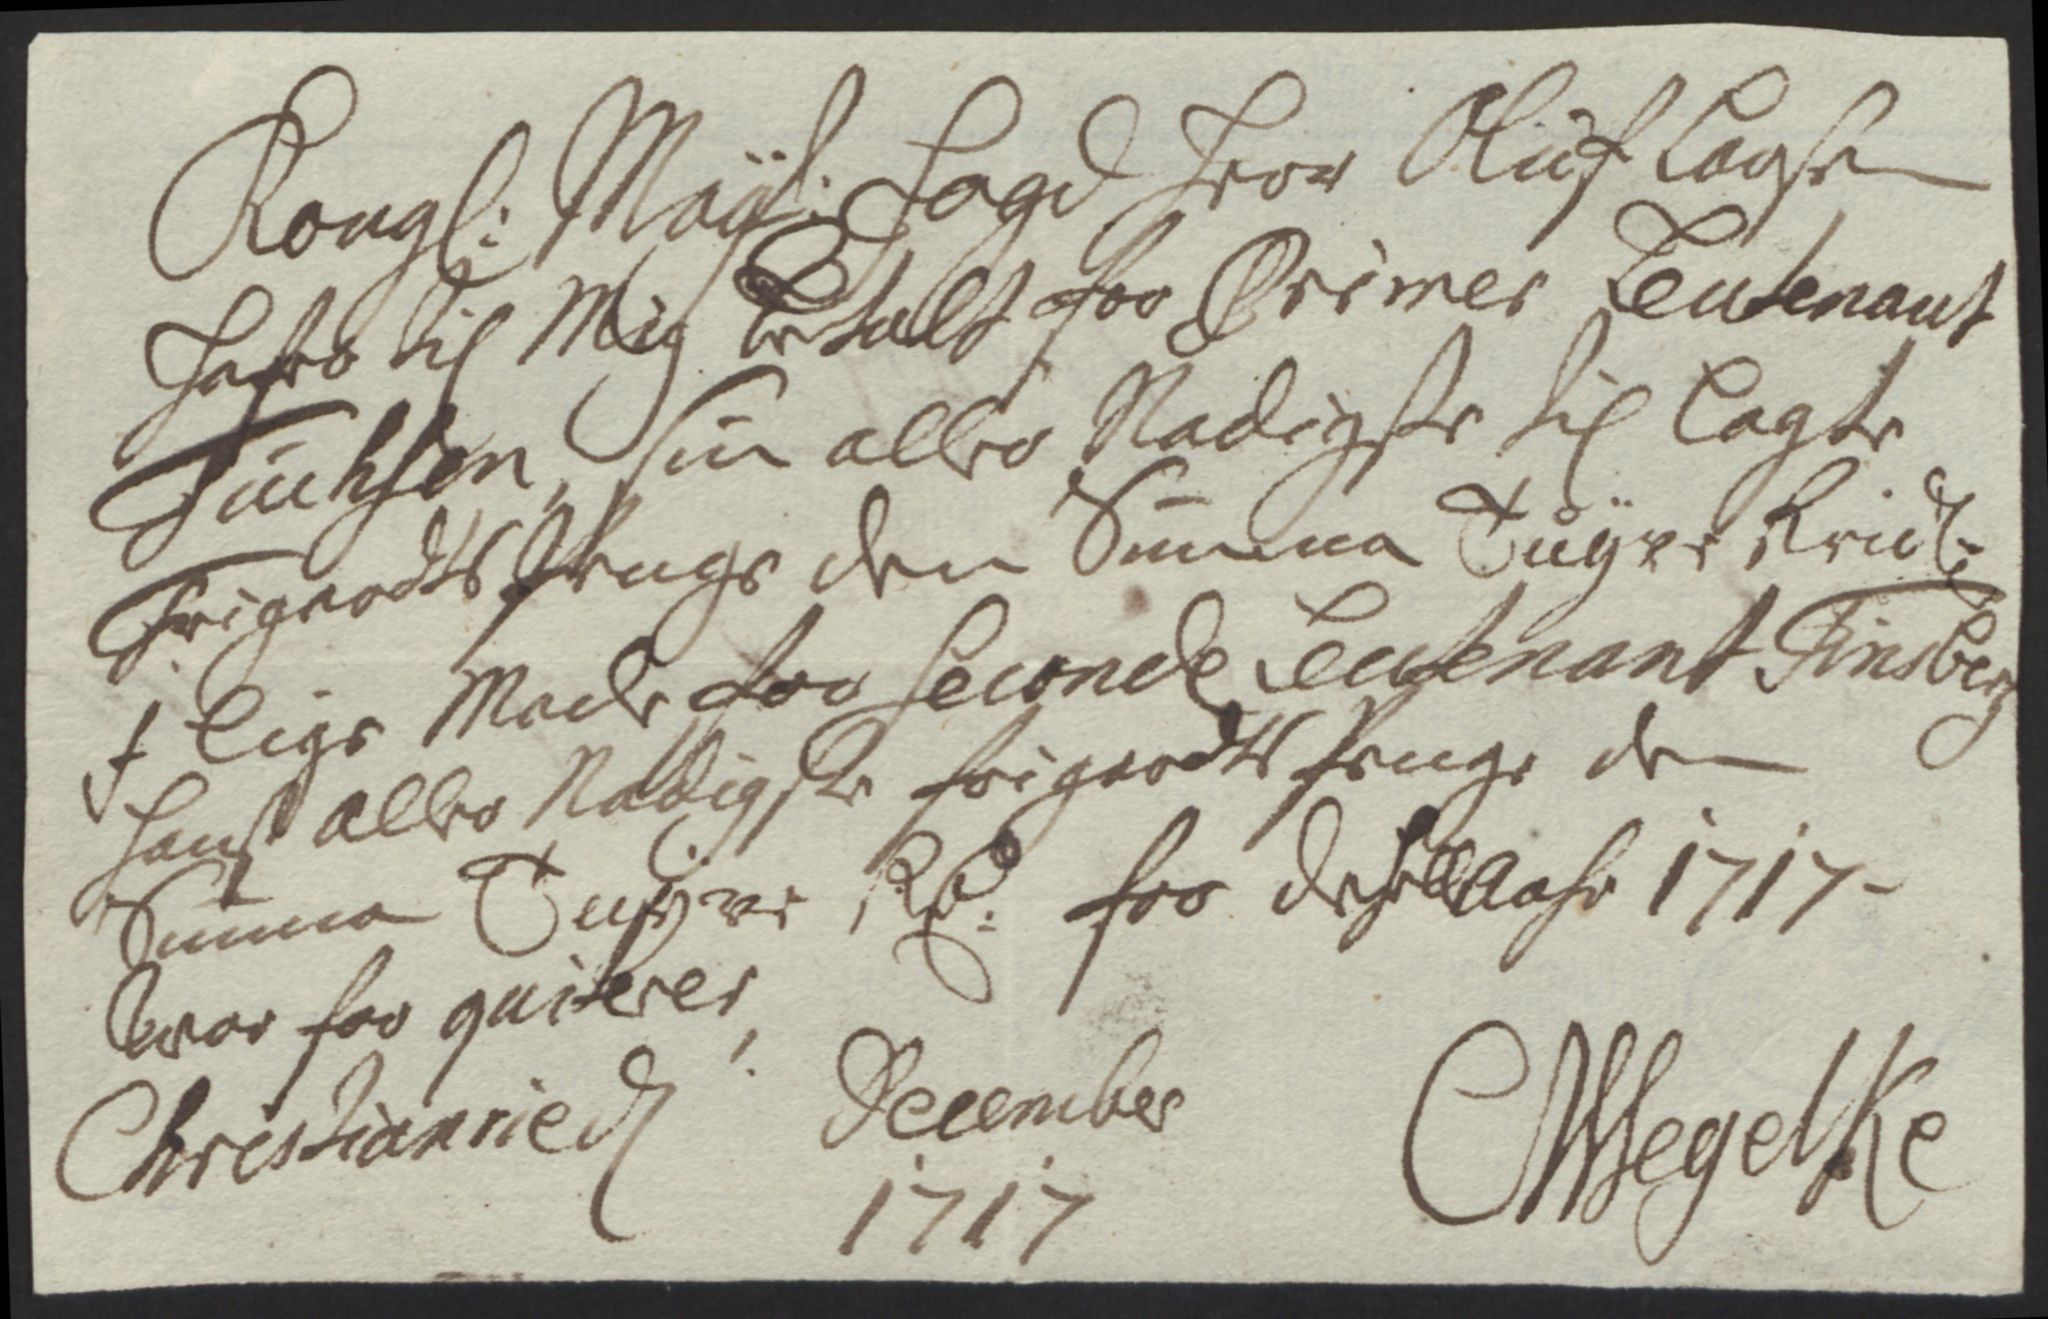 Kongl: Maÿt: Fogd Herr Oluf Lagsen
Hafr til Mig betalt for Primer Leutenant
Tuchsen, sin aller Nadigste til lagte
Frigaards penge den Summa Tuÿve Rixd:
J lige Made for Seconde Leutenant Finsberg
hans aller Nadigste frigaards penge den
Summa Tuÿve Rd: for dette Aahr 1717-
hvor for quiterer
Christianried December
1717
CMSegelKe